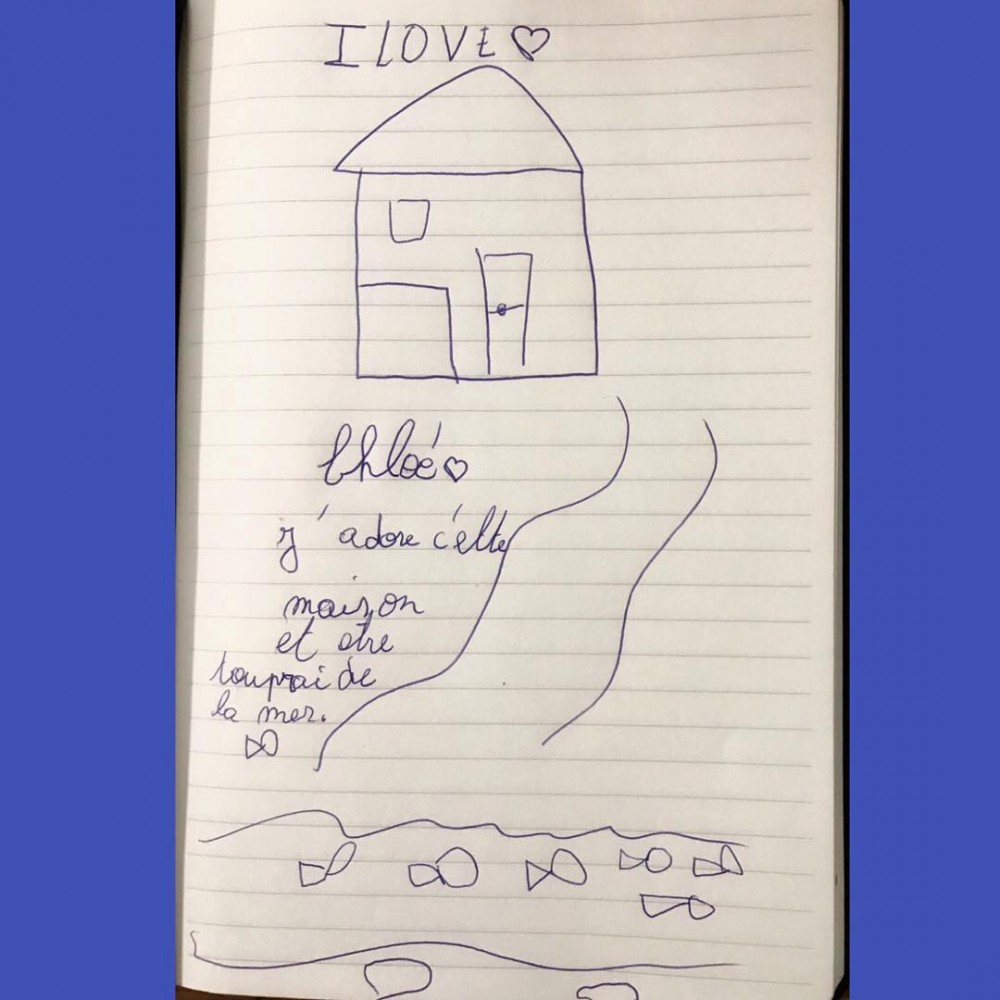 I LOVE ♡
Chloé ♡
j'adore c'élte
maison
et etre
touprai de
la mer.